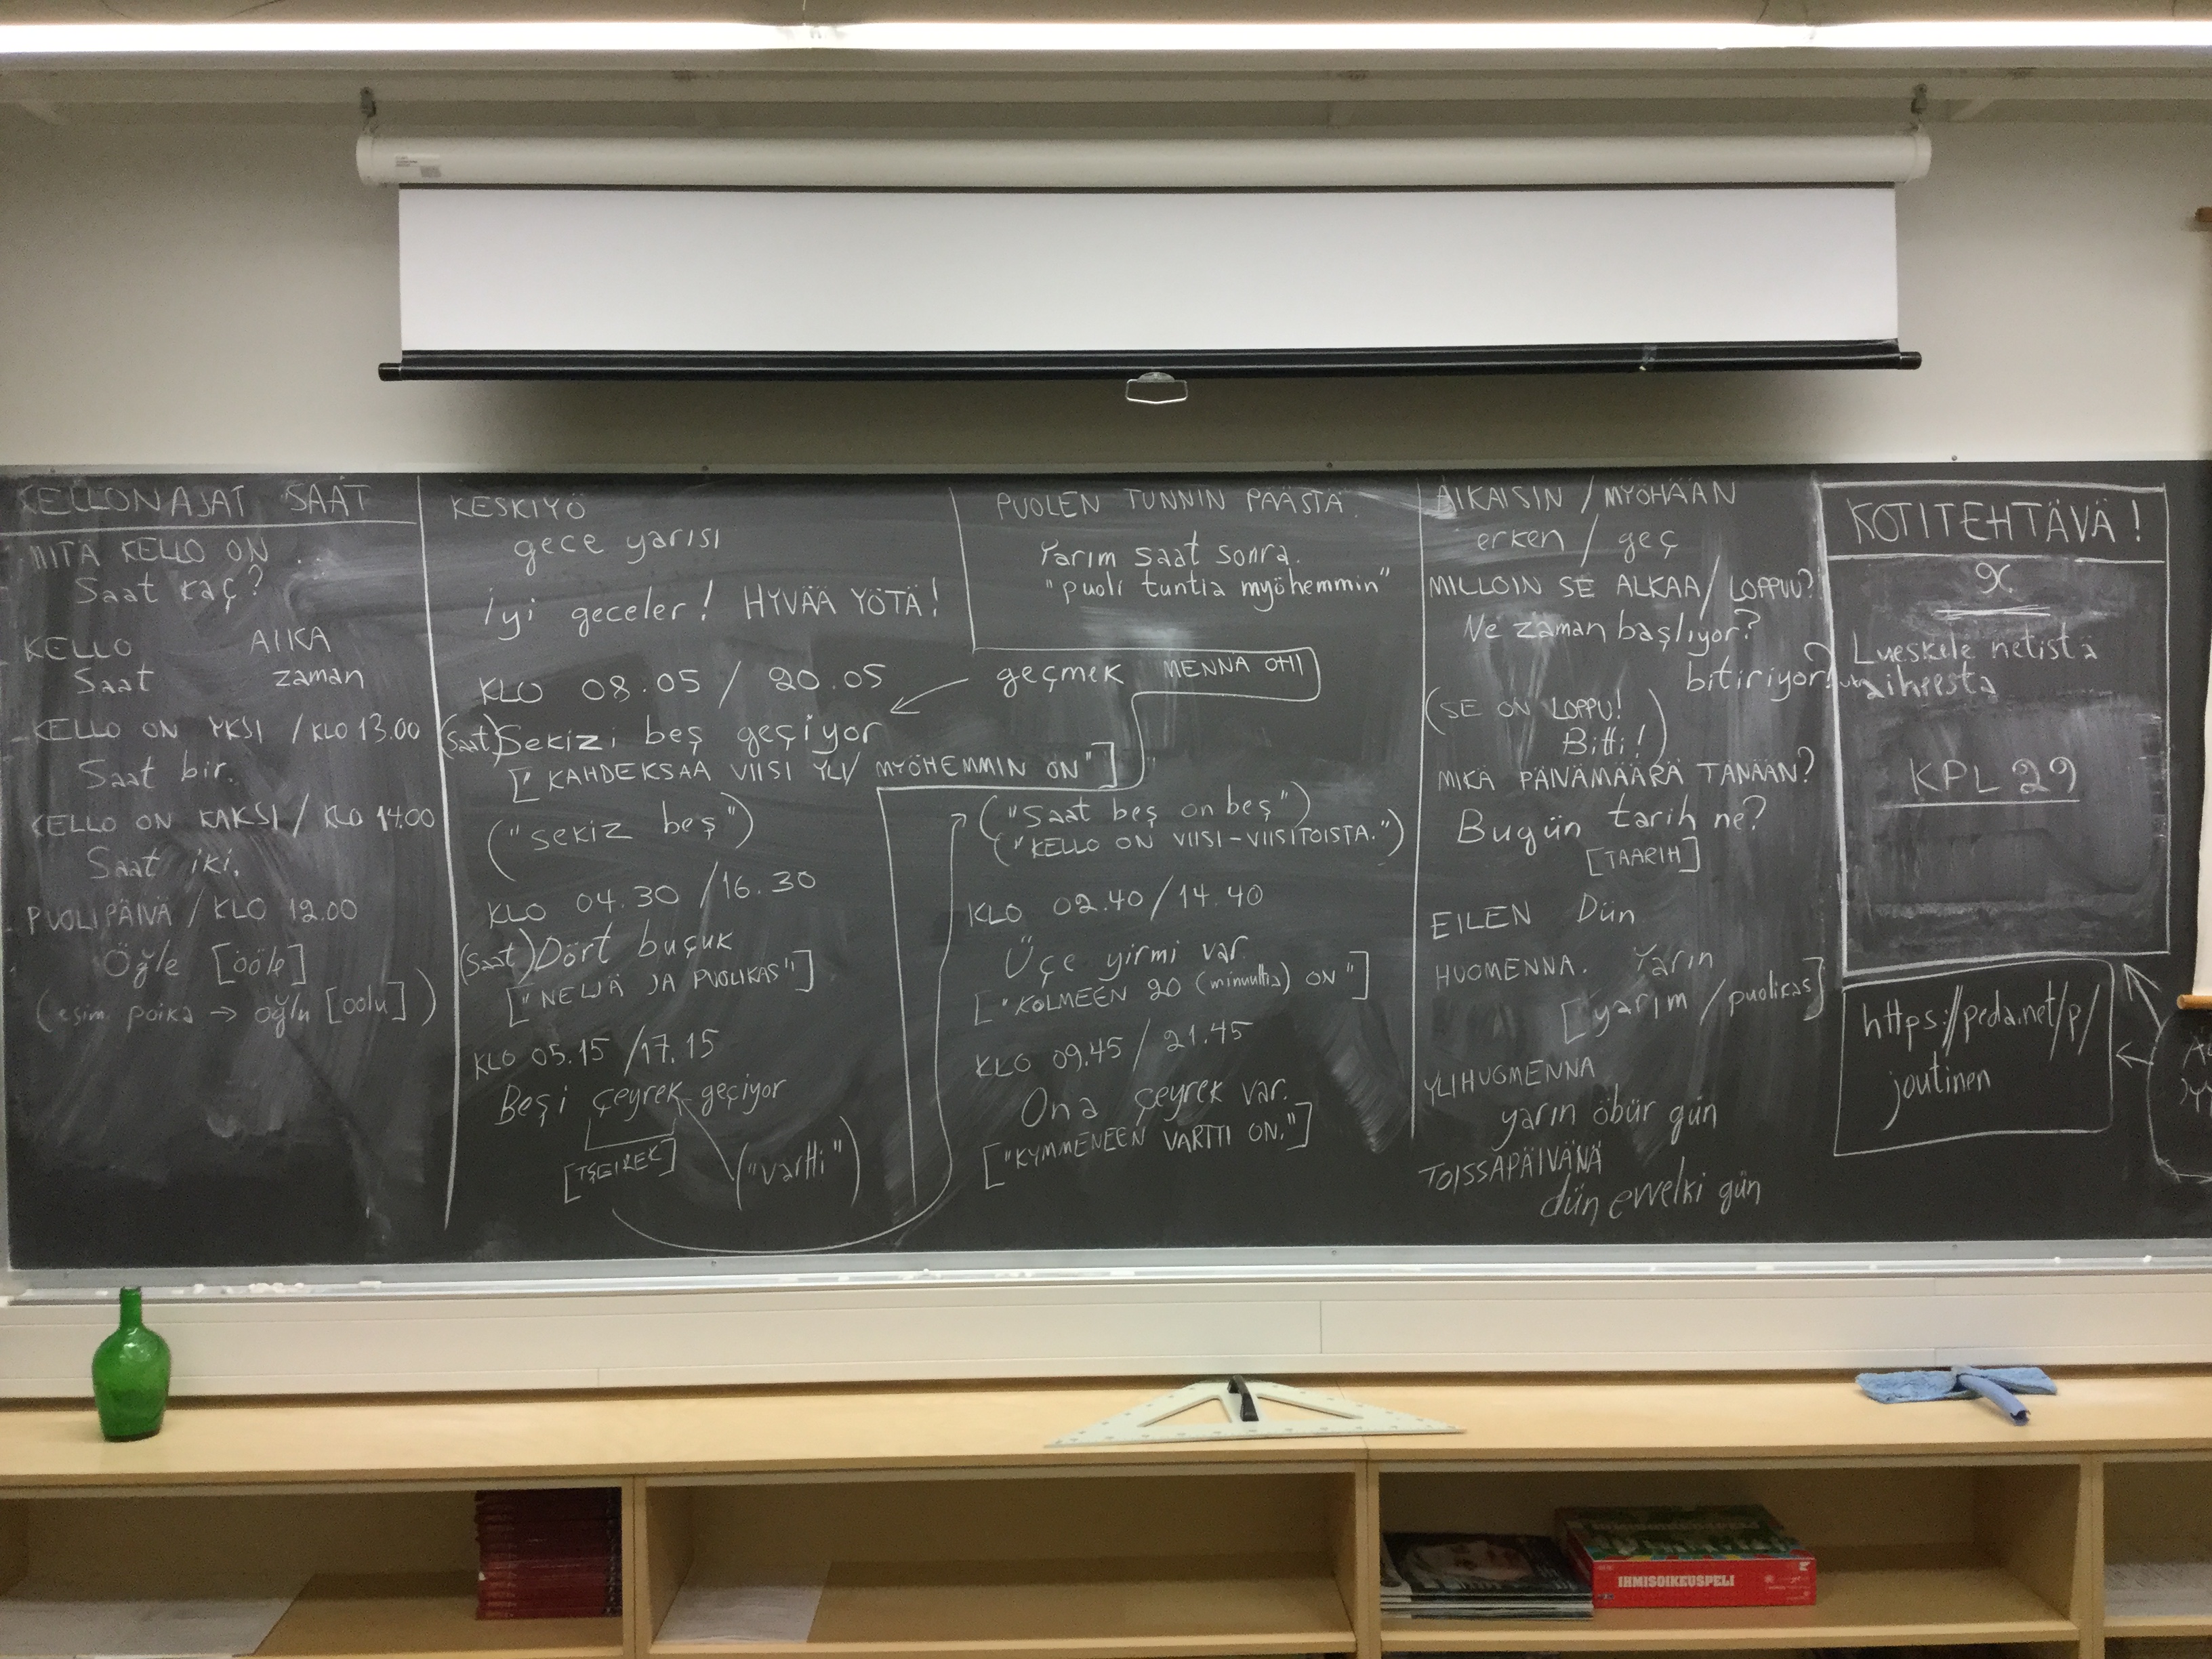 KELLONAJAT SAAT
MITÄ KELLO ON
Saat kaç?
KELLO AIKA
Saat zaman
KELLO ON YKSI / KLO 13.00
Saat bir.
KELLO ON KAKSI / KLO 14.00
Saat iki.
PUOLIPÄIVÄ / KLO 12.00
Öğle [ööle]
(esim. poika → oğlu [oolu])
KESKIYÖ
gece yarısı
İyi geceler! HYVÄÄ YÖTÄ!
KLO 08.05 / 20.05
(Saat) Sekizi beş geçiyor
["KAHDEKSAA VIISI YLI/ MYÖHEMMIN ON"]
("sekiz beş")
KLO 04.30 / 16.30
(Saat) Dört buçuk
["NELJÄ JA PUOLIKAS"]
KLO 05.15 / 17.15
Beşi çeyrek geçiyor
[TŞEIREK] ("vartti")
PUOLEN TUNNIN PÄÄSTÄ.
Yarım saat sonra.
"puoli tuntia myöhemmin"
geçmek MENNÄ OHI
("Saat beş on beş")
("KELLO ON VIISI-VIISITOISTA.")
KLO 02.40 / 14.40
Üçe yirmi var.
["KOLMEEN 20 (minuuttia) ON"]
KLO 09.45 / 21.45
Ona çeyrek var.
["KYMMENEEN VARTTI ON."]
AIKAISIN / MYÖHÄÄN
erken / geç
MILLOIN SE ALKAA / LOPPUU?
Ne zaman başlıyor?
bitiriyor?
(SE ON LOPPU!
Bitti!)
MIKÄ PÄNÄMÄÄRÄ TÄNÄÄN?
Bugün tarih ne?
[TAARIH]
EILEN Dün
HUOMENNA. Yarın
[yarım / puolikas]
YLIHUOMENNA
yarın öbür gün
TOISSAPÄIVÄNÄ
dün evvelki gün
KOTITEHTÄVÄ!
9X
Lueskele netistä
aiheesta
KPL 29
https://peda.net/p/
joutinen
IHMISOIKEUSPELI